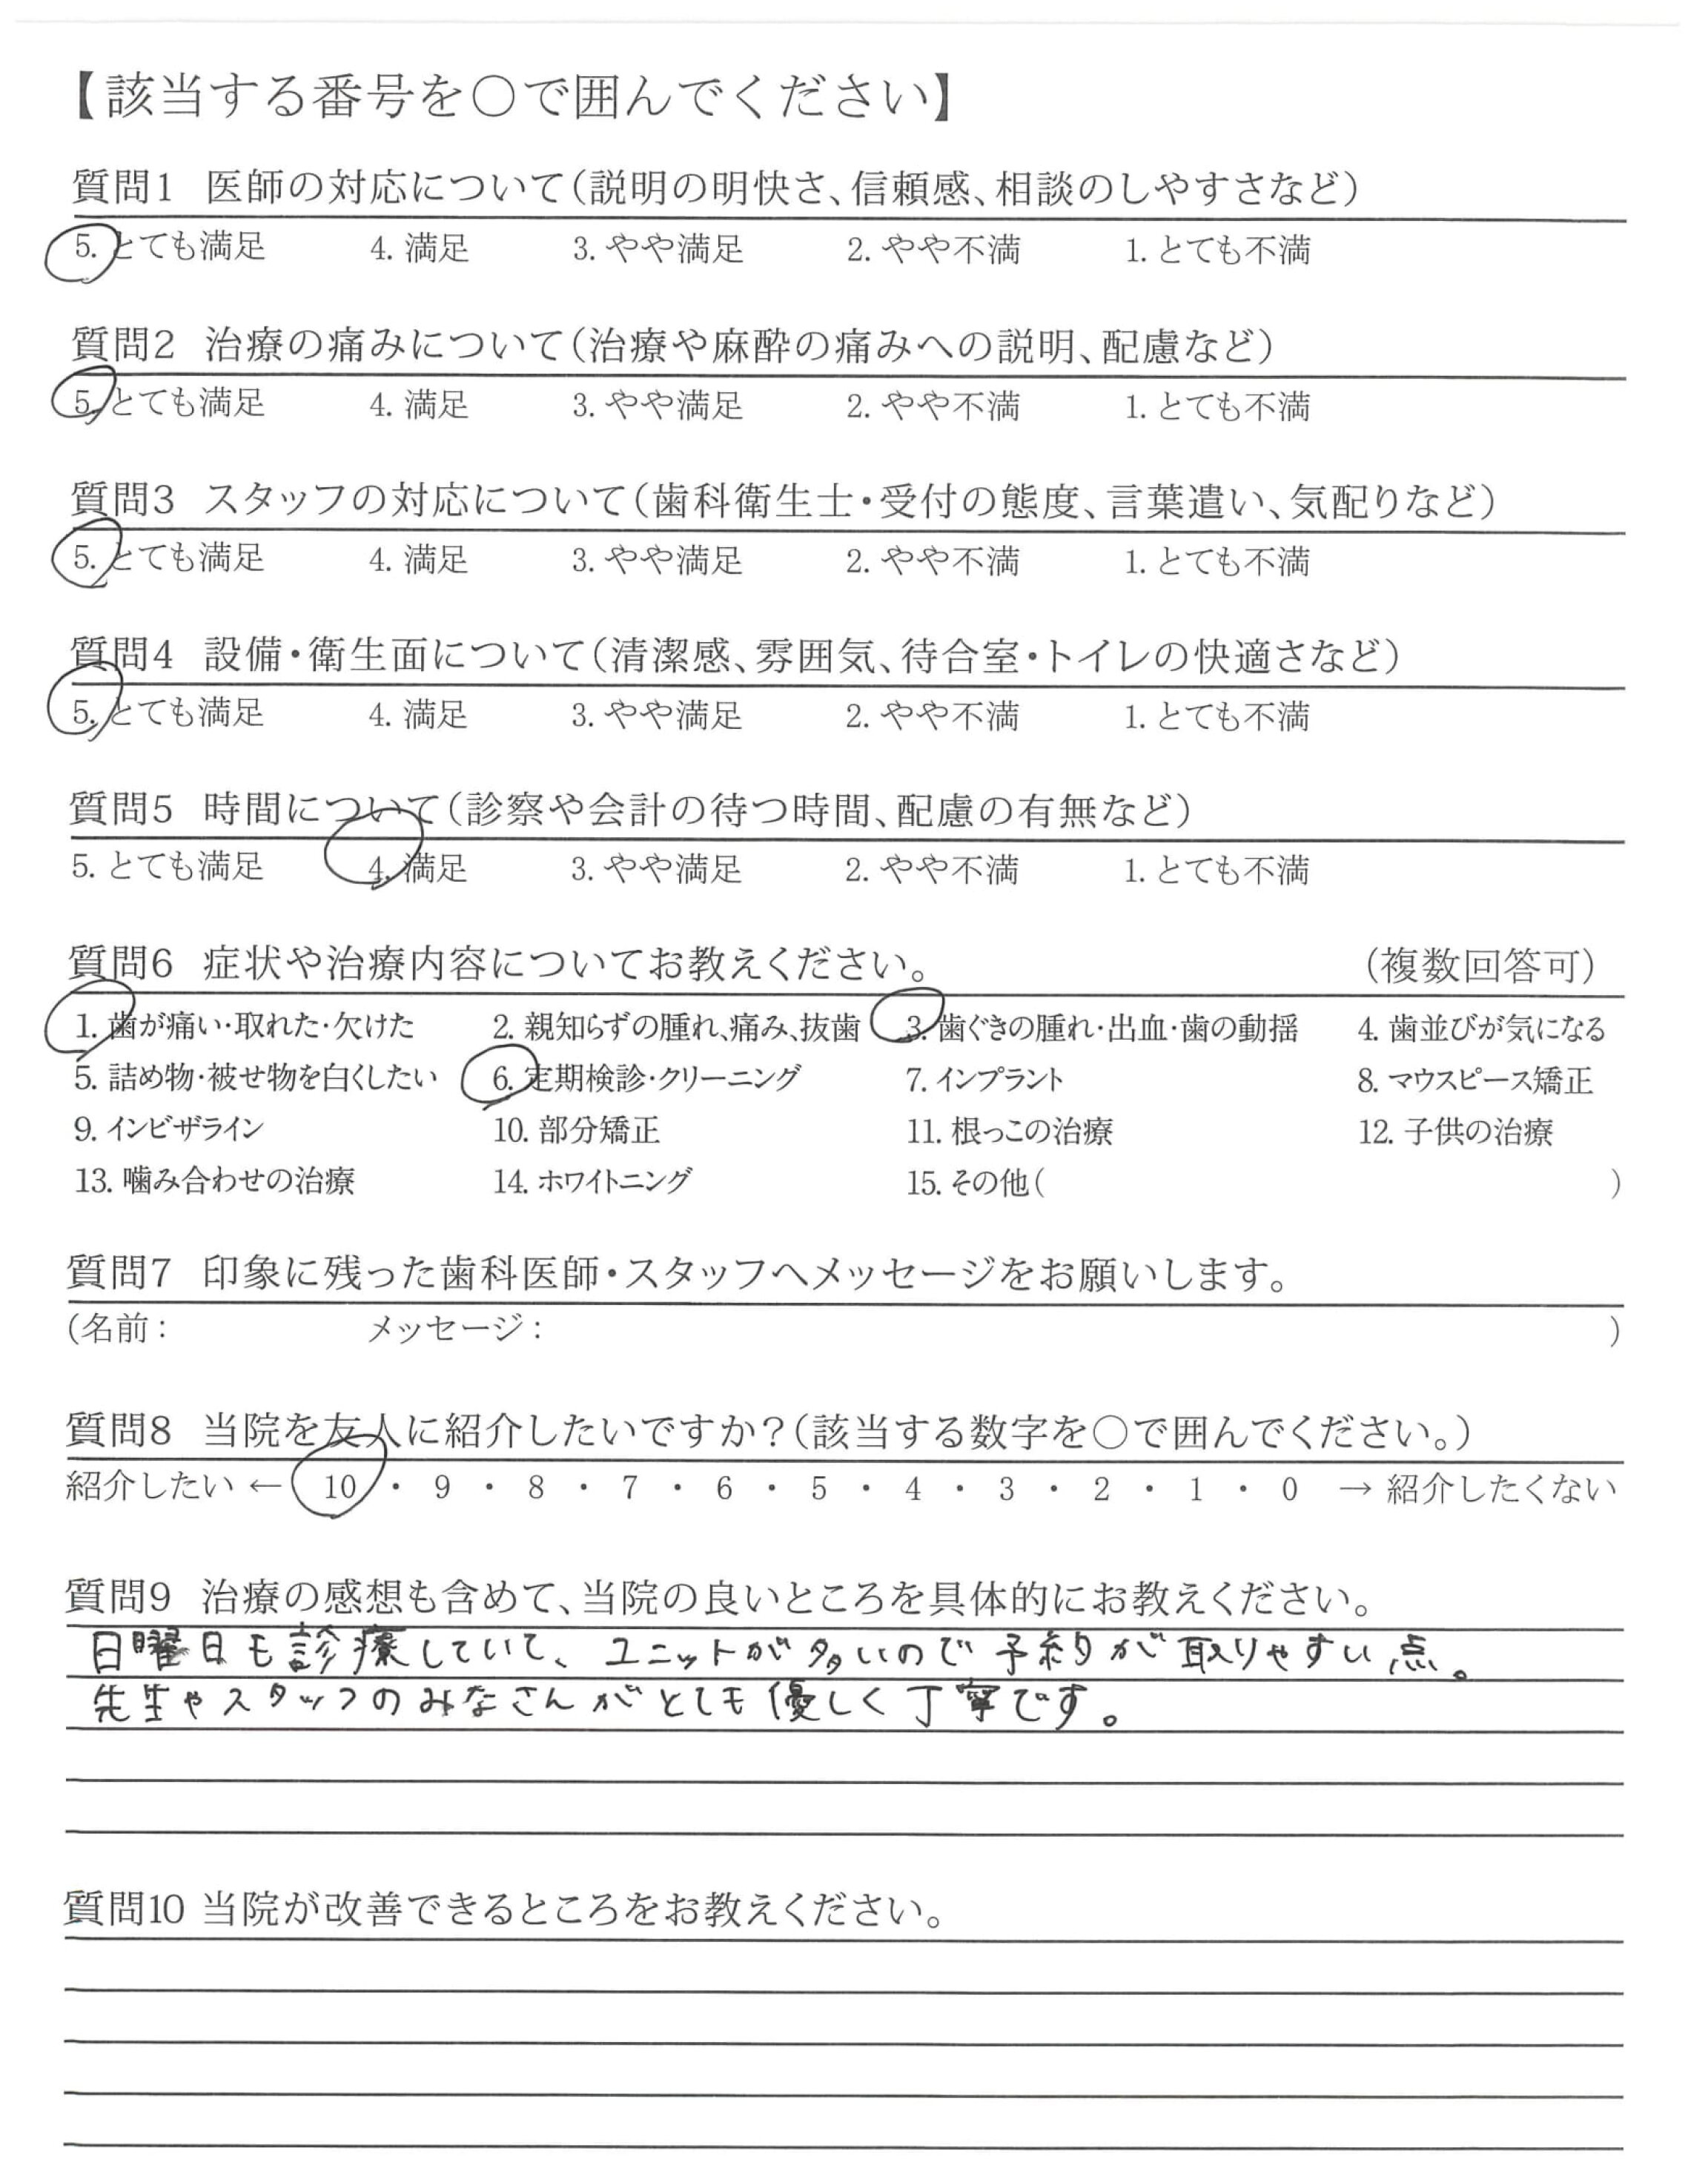 【該当する番号を○で囲んでください】
質問1 医師の対応について（説明の明快さ、信頼感、相談のしやすさなど）
5. とても満足 4. 満足 3. やや満足 2. やや不満 1. とても不満
質問2 治療の痛みについて（治療や麻酔の痛みへの説明、配慮など）
5. とても満足 4. 満足 3. やや満足 2. やや不満 1. とても不満
質問3 スタッフの対応について（歯科衛生士・受付の態度、言葉遣い、気配りなど）
5. とても満足 4. 満足 3. やや満足 2. やや不満 1. とても不満
質問4 設備・衛生面について（清潔感、雰囲気、待合室・トイレの快適さなど）
5. とても満足 4. 満足 3. やや満足 2. やや不満 1. とても不満
質問5 時間について（診察や会計の待つ時間、配慮の有無など）
5. とても満足 4. 満足 3. やや満足 2. やや不満 1. とても不満
質問6 症状や治療内容についてお教えください。 （複数回答可）
1. 歯が痛い・取れた・欠けた 2. 親知らずの腫れ、痛み、抜歯 3. 歯ぐきの腫れ・出血・歯の動揺 4. 歯並びが気になる
5. 詰め物・被せ物を白くしたい 6. 定期検診・クリーニング 7. インプラント 8. マウスピース矯正
9. インビザライン 10. 部分矯正 11. 根っこの治療 12. 子供の治療
13. 噛み合わせの治療 14. ホワイトニング 15. その他（ ）
質問7 印象に残った歯科医師・スタッフへメッセージをお願いします。
（名前： メッセージ： ）
質問8 当院を友人に紹介したいですか？（該当する数字を○で囲んでください。）
紹介したい ← 10 ・ 9 ・ 8 ・ 7 ・ 6 ・ 5 ・ 4 ・ 3 ・ 2 ・ 1 ・ 0 → 紹介したくない
質問9 治療の感想も含めて、当院の良いところを具体的にお教えください。
日曜日も診療していて、ユニットが多いので予約が取りやすい点。
先生やスタッフのみなさんがとても優しく丁寧です。
質問10 当院が改善できるところをお教えください。